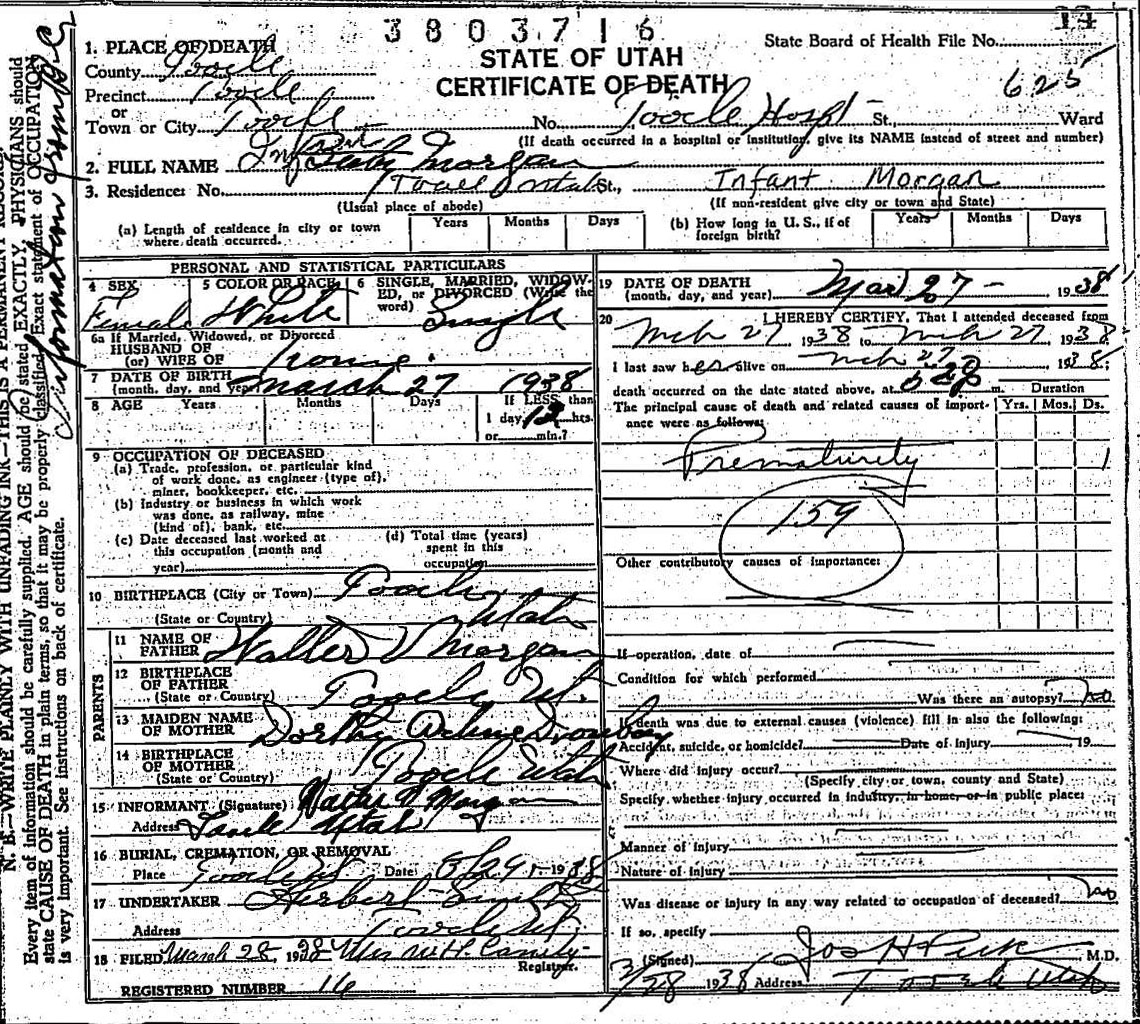 3803716
14
1. PLACE OF DEATH
STATE OF UTAH
CERTIFICATE OF DEATH
State Board of Health File No.
625
County Tooele
Precinct Tooele
or
Town or City Tooele No. Tooele Hospt St., Ward
(If death occurred in a hospital or institution, give its NAME instead of street and number)
2. FULL NAME Infant Baby Morgan
3. Residence: No. Tooele St., Infant Morgan
(Usual place of abode) (If non-resident give city or town and State)
(a) Length of residence in city or town where death occurred. Years Months Days
(b) How long in U. S., if of foreign birth? Years Months Days
PERSONAL AND STATISTICAL PARTICULARS
4 SEX Female
5 COLOR OR RACE White
6 SINGLE, MARRIED, WIDOWED, or DIVORCED (Write the word) Single
6a If Married, Widowed, or Divorced
HUSBAND OF
(or) WIFE OF none.
7 DATE OF BIRTH
(month, day, and year) March 27 1938
8 AGE Years Months Days
If LESS than
1 day, 12 hrs.
or min.?
9 OCCUPATION OF DECEASED
(a) Trade, profession, or particular kind
of work done, as engineer (type of),
miner, bookkeeper, etc.
(b) Industry or business in which work
was done, as railway, mine
(kind of), bank, etc.
(c) Date deceased last worked at
this occupation (month and
year)
(d) Total time (years)
spent in this
occupation
10 BIRTHPLACE (City or Town) Tooele
(State or Country) Utah
PARENTS
11 NAME OF
FATHER Walter V Morgan
12 BIRTHPLACE
OF FATHER
(State or Country) Tooele Ut.
13 MAIDEN NAME
OF MOTHER Dorthy
14 BIRTHPLACE
OF MOTHER
(State or Country) Tooele Utah
15 INFORMANT (Signature) Walter V Morgan
Address Tooele Utah
16 BURIAL, CREMATION, OR REMOVAL
Place Tooele Ut Date 3/29, 1938
17 UNDERTAKER Herbert
Address Tooele Ut,
18 FILED March 28, 1938 Mrs W.H.
Registrar.
REGISTERED NUMBER 16
19 DATE OF DEATH
(month, day, and year) Mar 27 - 1938
20 I HEREBY CERTIFY, That I attended deceased from
Mch 27 1938 to Mch 27 1938
I last saw her alive on Mch 27 1938;
death occurred on the date stated above, at m. Duration
The principal cause of death and related causes of importance were as follows: Yrs. Mos. Ds.
Prematurity 1
159
Other contributory causes of importance:
If operation, date of
Condition for which performed
Was there an autopsy? no
If death was due to external causes (violence) fill in also the following:
Accident, suicide, or homicide? Date of injury 19
Where did injury occur?
(Specify city or town, county and State)
Specify whether injury occurred in industry, in home, or in public place:
Manner of injury
Nature of injury
Was disease or injury in any way related to occupation of deceased? no
If so, specify
(Signed) Jos H Peck M.D.
3/28 1938 Address Tooele Utah
N. B.—WRITE PLAINLY WITH UNFADING INK—THIS IS A PERMANENT RECORD.
Every item of information should be carefully supplied. AGE should be stated EXACTLY. PHYSICIANS should
state CAUSE OF DEATH in plain terms, so that it may be properly classified. Exact statement of OCCUPATION
is very important. See instructions on back of certificate.
Information